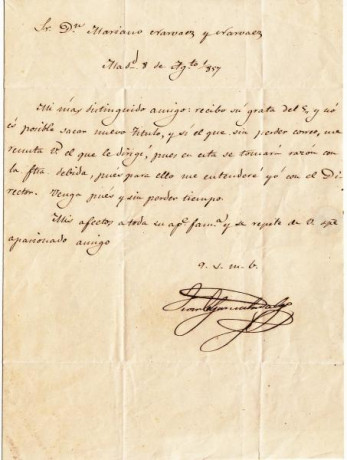 Sr. Dn. Mariano Narvaez y Narvaez
Madd. 8 de Agto. 1857
Mi mas distinguido amigo: recibo su grata del 5, y nó
és posible sacar nuevo titulo, y sí el que sin perder correo, me
remita V. el que le dirigí, pues en esta se tomará razón con
la fha debida, pues para ello me entenderé yó con el Di-
rector. Venga pues y sin perder tiempo.
Mis afectos a toda su apa. fama. y se repite de V. spre
apasionado amigo
q. s. m. b.
Juan